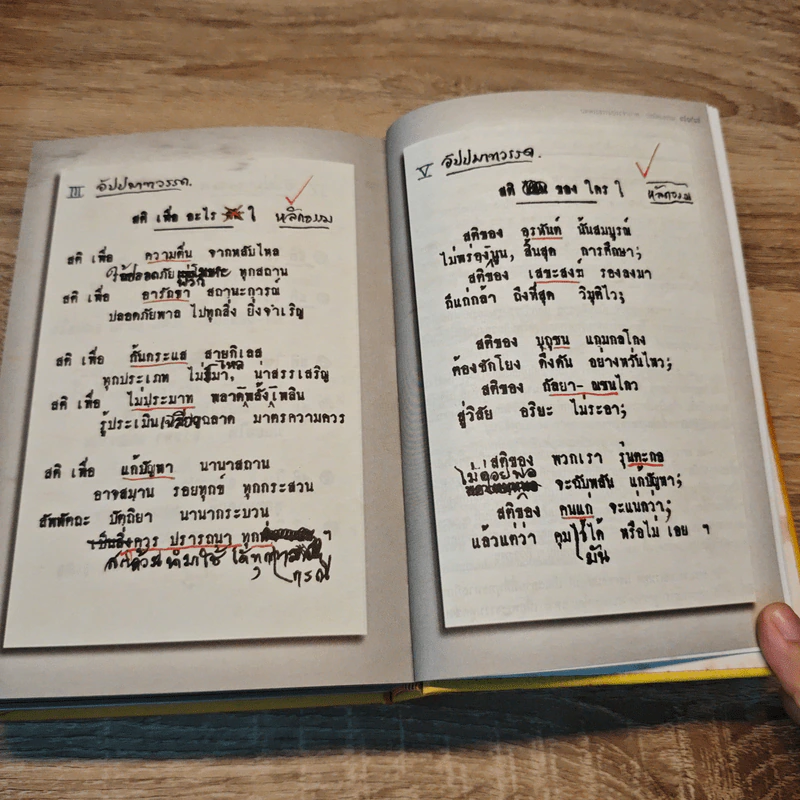 III อัปปมาทวรรค.
สติ เพื่อ อะไร ?
หลักธรรม
สติ เพื่อ ความตื่น จากหลับไหล
ให้ปลอดภัย ทุกสถาน
สติ เพื่อ อารักขา สถานะการุณ์
ปลอดภัยพาล ไปทุกสิ่ง ยิ่งจำเริญ
สติ เพื่อ กั้นกระแส สายกิเลส
ทุกประเภท ไม่ไหลมา, น่าสรรเสริญ
สติ เพื่อ ไม่ประมาท พลาดพลั้งเพลิน
รู้ประเมิน ฉลาด มาตรความควร
สติ เพื่อ แก้ปัญหา นานาสถาน
อาจสมาน รอยทุกข์ ทุกกระสวน
สัพพัตถะ ปัตถิยา นานากระบวน
เป็นสิ่งควร ปรารถนา ทุก ฯ
นำมาใช้ ได้ทุก
กรณี
V อัปปมาทวรรค.
สติ ของ ใคร ?
หลักธรรม
สติของ อรหันต์ นั้นสมบูรณ์
ไม่พร่องพูน, สิ้นสุด การศึกษา;
สติของ เสขะสงฆ์ รองลงมา
ก็แก่กล้า ถึงที่สุด วิมุติไว;
สติของ บุถุชน แถมกลโกง
ต้องชักโยง ดึงดัน อย่างหวั่นไหว;
สติของ กัลยา-ณชนไกว
สู่วิสัย อริยะ ไม่ระอา;
สติของ พวกเรา รุ่นตะกอ
ไม่ค่อยพอ จะฉับพลัน แก้ปัญหา;
สติของ คนแก่ จะแน่กว่า;
แล้วแต่ว่า คุมมันไว้ได้ หรือไม่ เอย ฯ